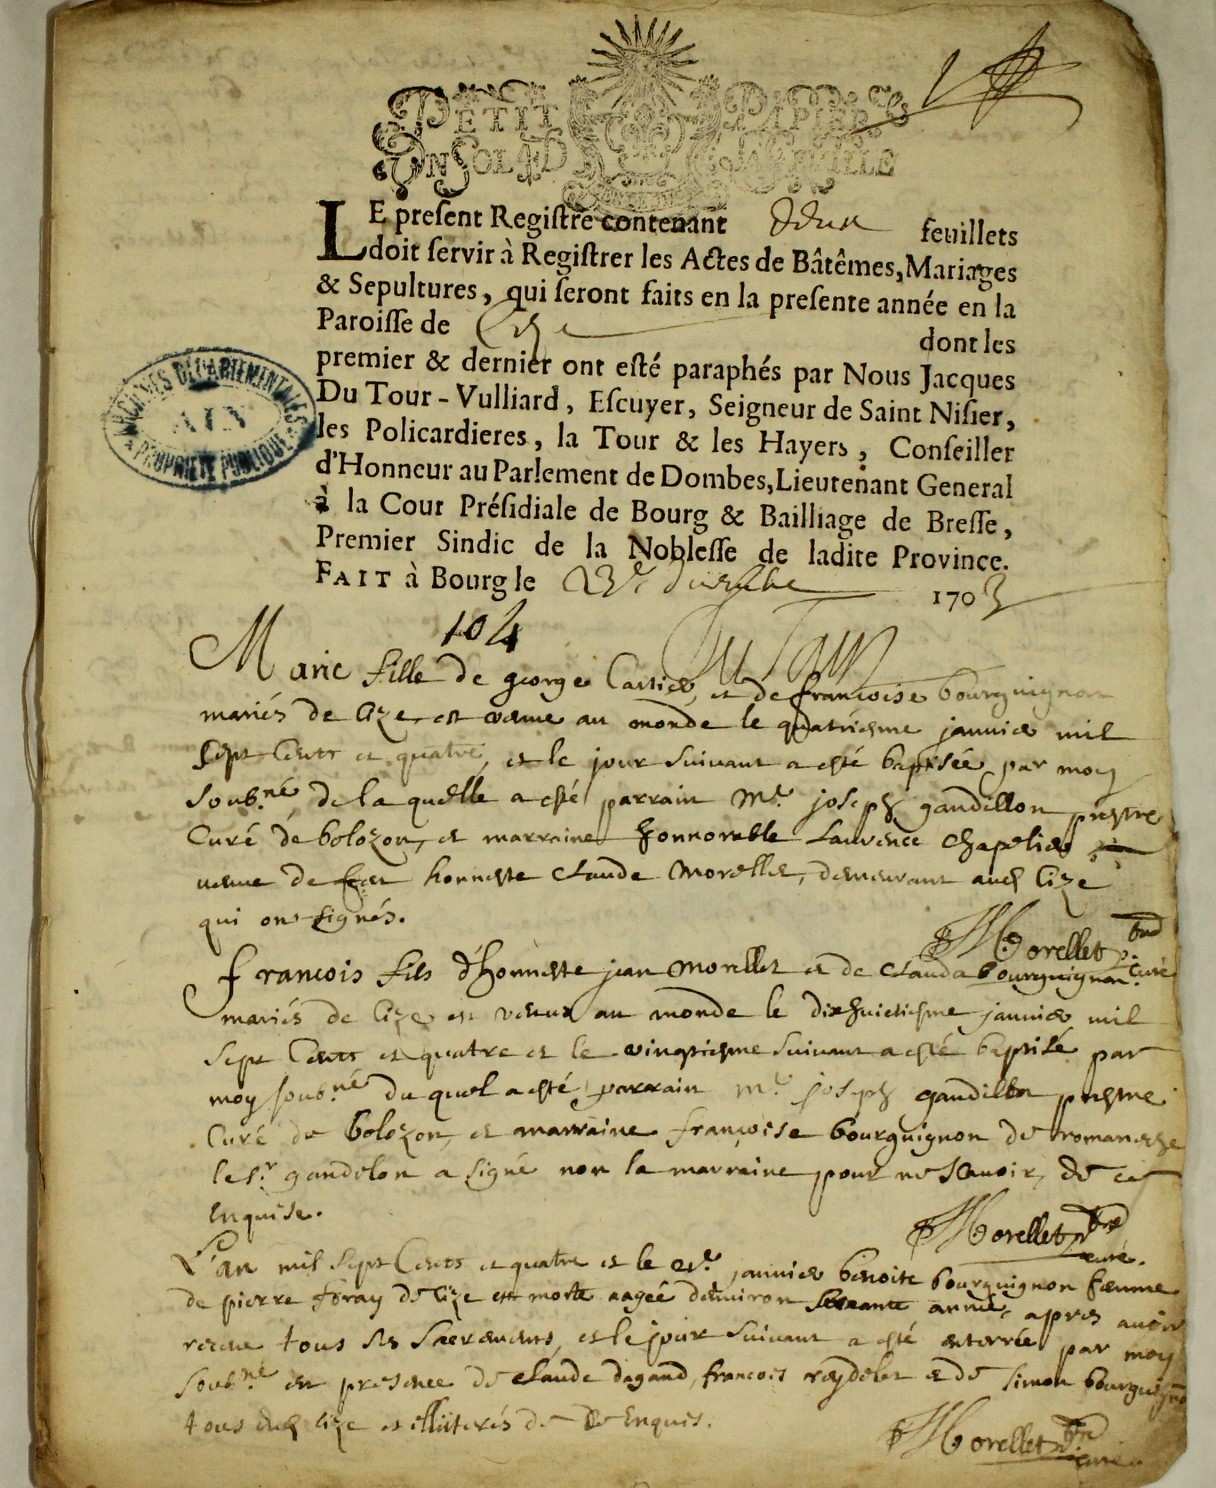 PETIT PAPIER
UN SOL LA FEUILLE
LE preſent Regiſtre contenant deux feuillets
doit ſervir à Regiſtrer les Actes de Bâtêmes, Mariages
& Sepultures, qui ſeront faits en la preſente année en la
Paroiſſe de Cize dont les
premier & dernier ont eſté paraphés par Nous Jacques
Du Tour-Vulliard, Eſcuyer, Seigneur de Saint Niſier,
les Policardieres, la Tour & les Hayers, Conſeiller
d'Honneur au Parlement de Dombes, Lieutenant General
à la Cour Préſidiale de Bourg & Bailliage de Breſſe,
Premier Sindic de la Nobleſſe de ladite Province.
FAIT à Bourg le 23e 1703
ARCHIVES DÉPARTEMENTALES
AIN
PROPRIÉTÉ PUBLIQUE
104
Du Tour
Marie fille de george Cartier, et de françoise bourguignon
mariés de Cize est venue au monde le quatriesme janvier mil
sept Cents et quatre, et le jour suivant a esté baptisée par moy
soubné de la quelle a esté parrain Mr joseph gandillon prestre
Curé de bolozon, et marraine honnorable Laurence Chapelier
veuve de honneste Claude Morellet, demeurant aud Cize
qui ont signés.
Morellet curé
françois fils d'honneste jean Morellet et de Clauda bourguignon
mariés de Cize est venux au monde le dixhuictiesme janvier mil
sept Cents et quatre et le vingtiesme suivant a esté baptisé par
moy soubné du quel a esté parrain mr joseph gandillon prestre
Curé de bolozon, et marraine françoise bourguignon de romanesche
le sr gandelon a signé non la marraine pour ne scavoir, de ce
Enquise.
Morellet curé.
L'an mil sept Cents et quatre et le janvier benoite bourguignon faemme
de pierre foray de Cize est morte aagée denviron soixante année, apres avoir
receue tous ses sacrements, et le jour suivant a esté enterrée par moy
soubné en presence de Claude dagand, françois reydelet et de simon bourguignon
tous dud Cize et illiterés de Enquis.
Morellet curé